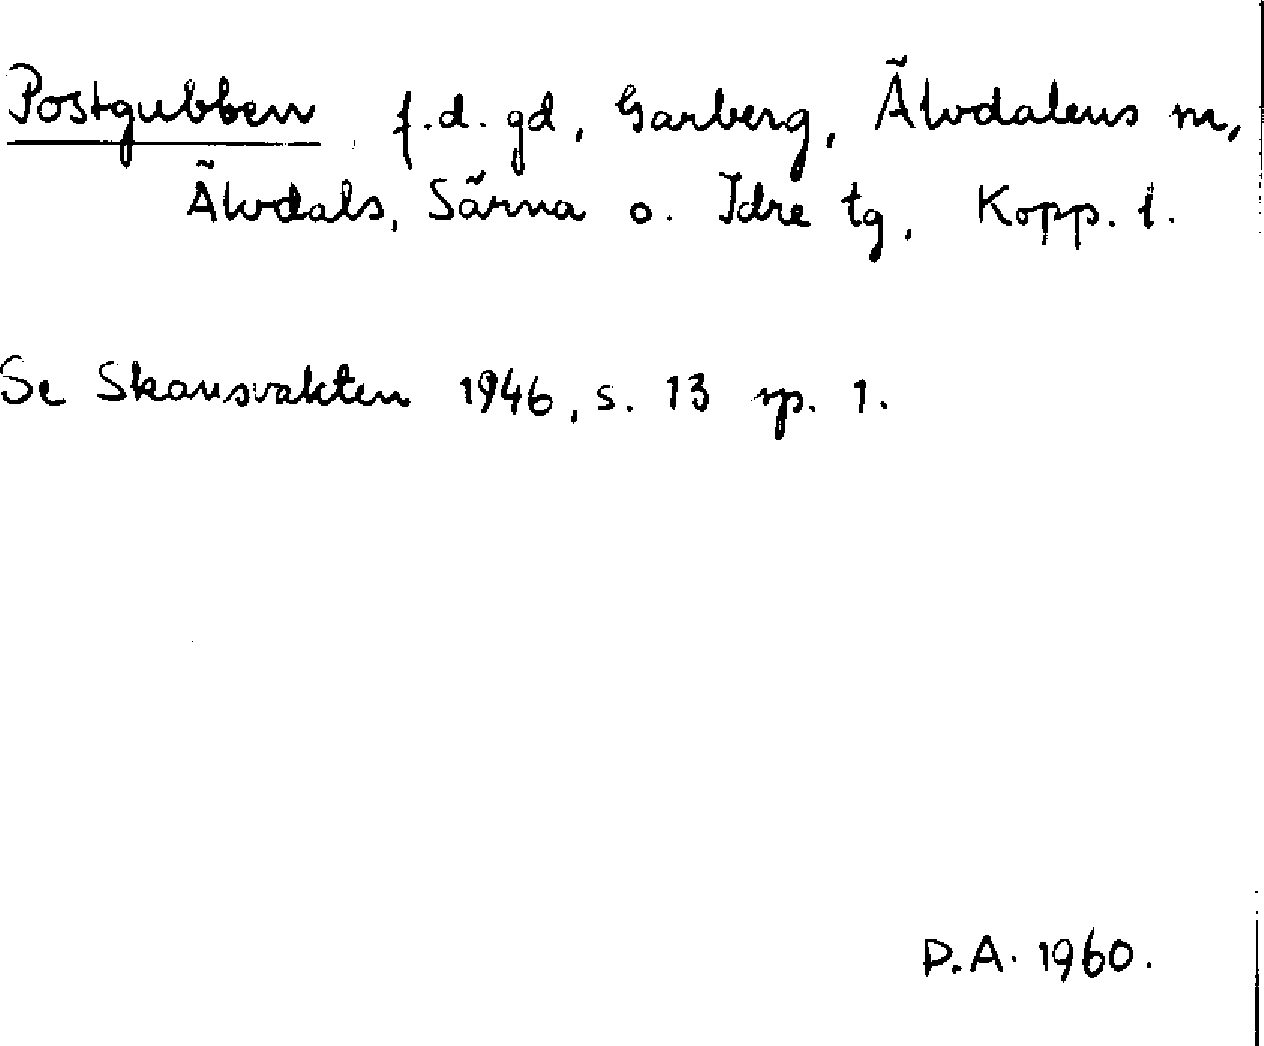 Postgubben, f.d. gd, Garberg, Älvdalens m,
Älvdals, Särna o. Idre tg, Kopp. l.
Se Skansvakten 1946, s. 13 sp. 1.
D.A. 1960.